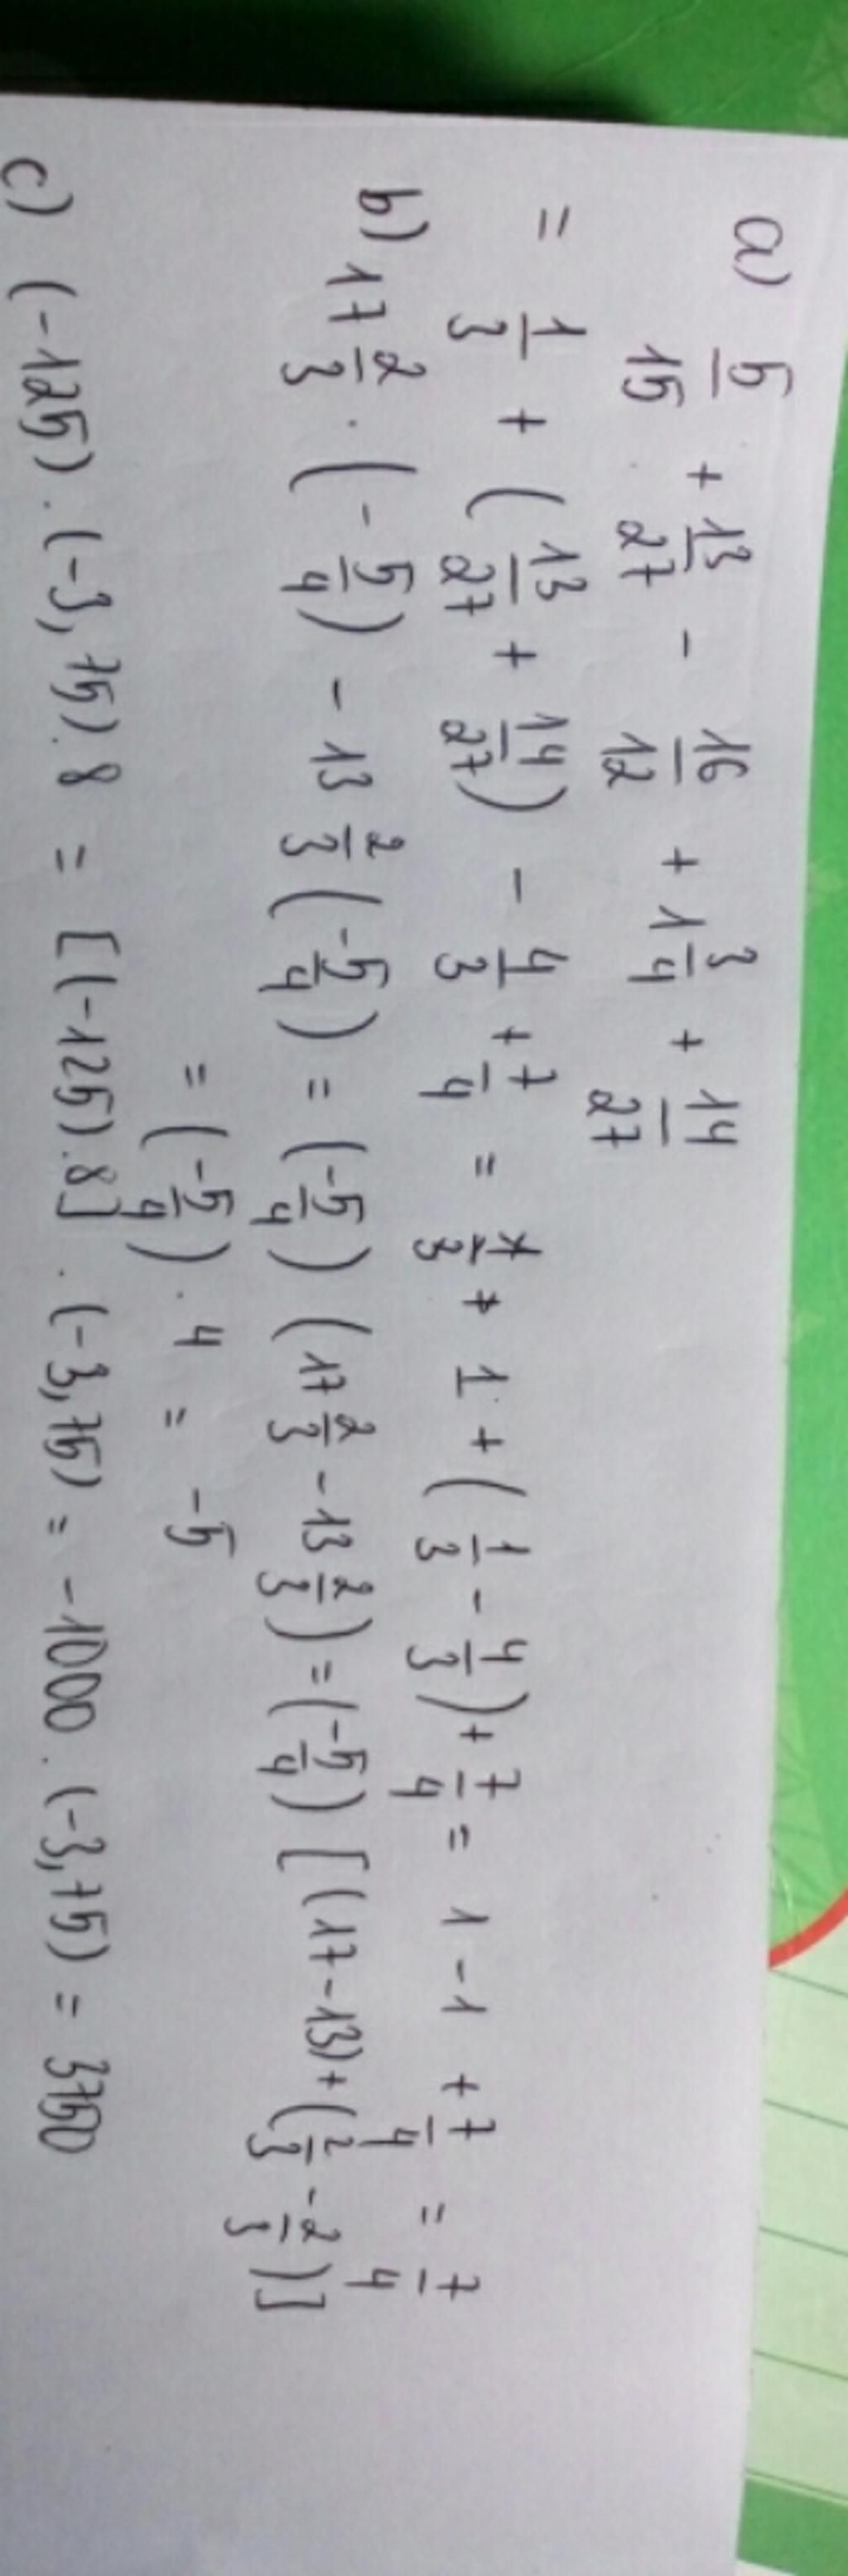 a) 5/15 + 13/27 - 16/12 + 1 3/4 + 14/27
= 1/3 + (13/27 + 14/27) - 4/3 + 7/4 = 1 + (1/3 - 4/3) + 7/4 = 1 - 1 + 7/4 = 7/4
b) 17 2/3 . (-5/4) - 13 2/3 (-5/4) = (-5/4) (17 2/3 - 13 2/3) = (-5/4) [(17-13) + (2/3 - 2/3)]
= (-5/4) . 4 = -5
c) (-125) . (-3,75) . 8 = [(-125) . 8] . (-3,75) = -1000 . (-3,75) = 3750